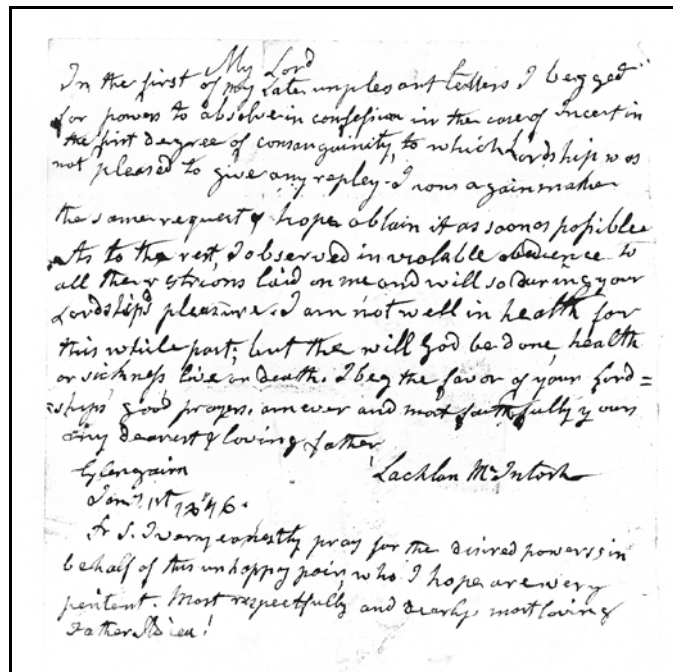 My Lord
In the first of my Later unplesant Letters I begged
for powers to absolve in confession in the case of Incest in
the first degree of consanguinity, to which Lordship was
not pleased to give any repley. I now again make
the same request & hope obtain it as soon as possible
As to the rest, I observed inviolable obedience to
all the restrions laid on me and will so during your
Lordship's pleasure. I am not well in health for
this while past; but the will God be done, health
or sickness live or death. I beg the favor of your Lord=
=ships good prayers, am ever and most faithfully yours
my dearest & loving father
Glengairn
Lachlan McIntosh
Jany. 1st 1846.
P. S. I very earnestly pray for the disired powers in
behalf of this unhappy pair, who I hope are very
penitent. Most respectfully and dearly most loving
Father Adieu!